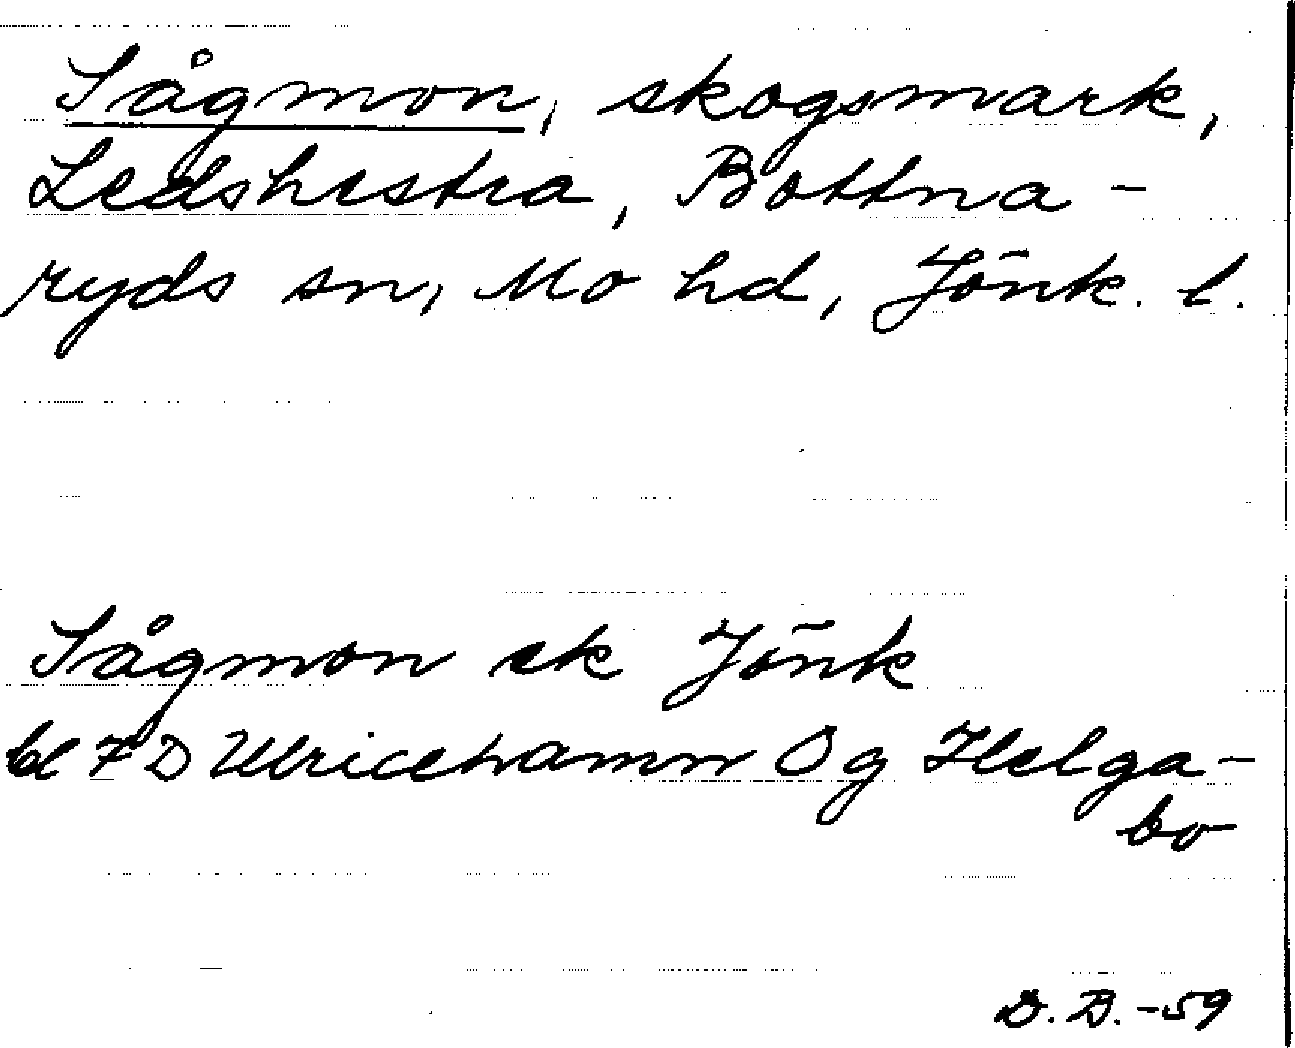 Sågmon, skogsmark,
Ledshestra, Bottna-
ryds sn, Mo hd, Jönk. l.
Sågmon sk Jönk
bl 7 D Ulricehamn Og Helga-
bo
D. B. -59